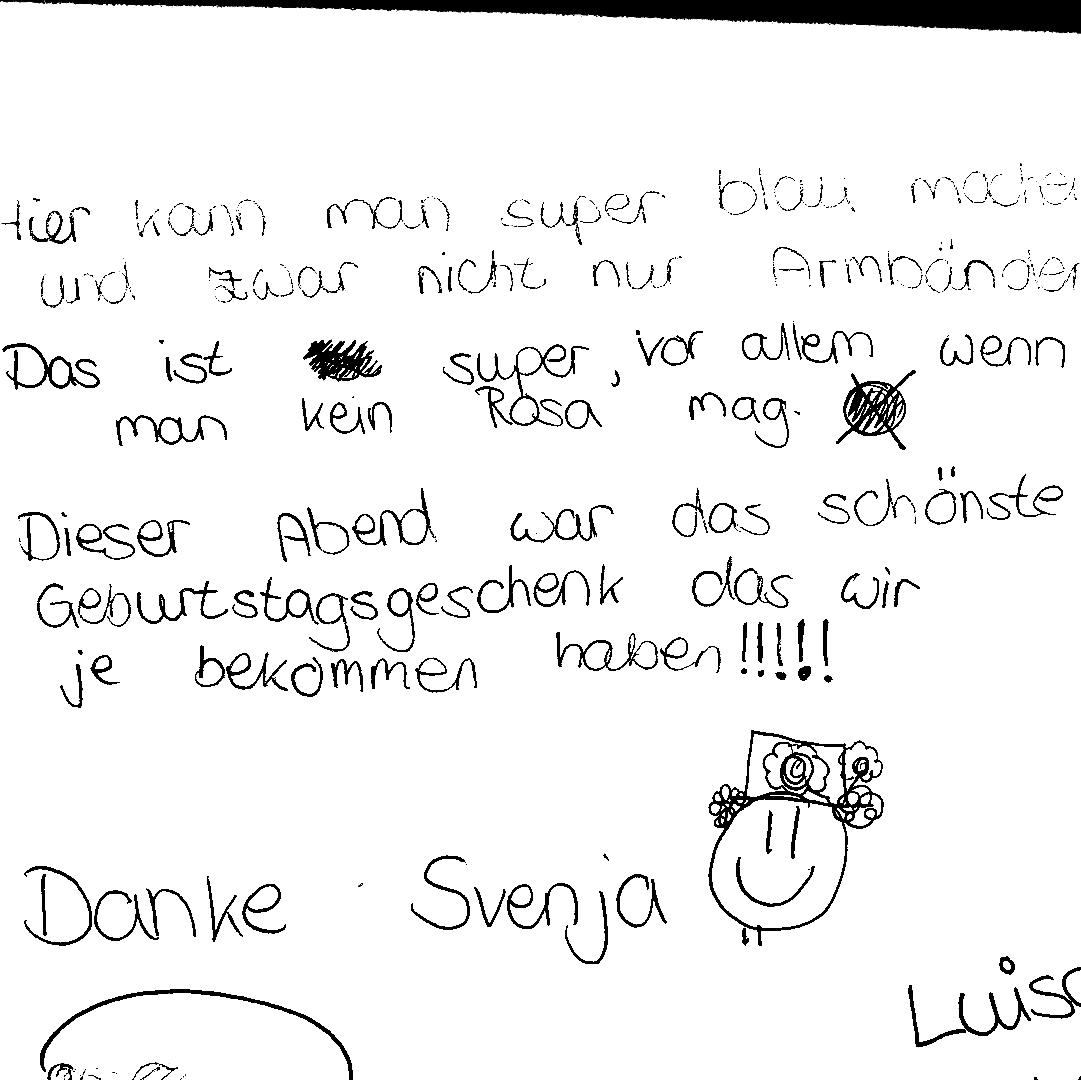 Hier kann man super blau machen
und zwar nicht nur Armbänder
Das ist super, vor allem wenn
man kein Rosa mag.
Dieser Abend war das schönste
Geburtstagsgeschenk das wir
je bekommen haben!!!!!
Danke Svenja
Luisa